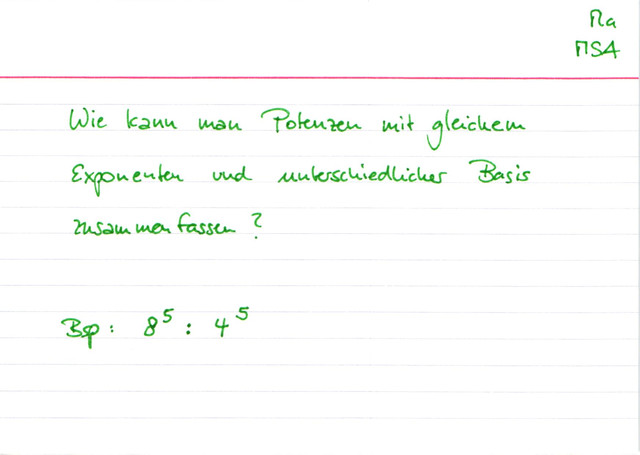 Ma
MSA
Wie kann man Potenzen mit gleichem
Exponenten und unterschiedlicher Basis
zusammenfassen?
Bsp: 8⁵ : 4⁵